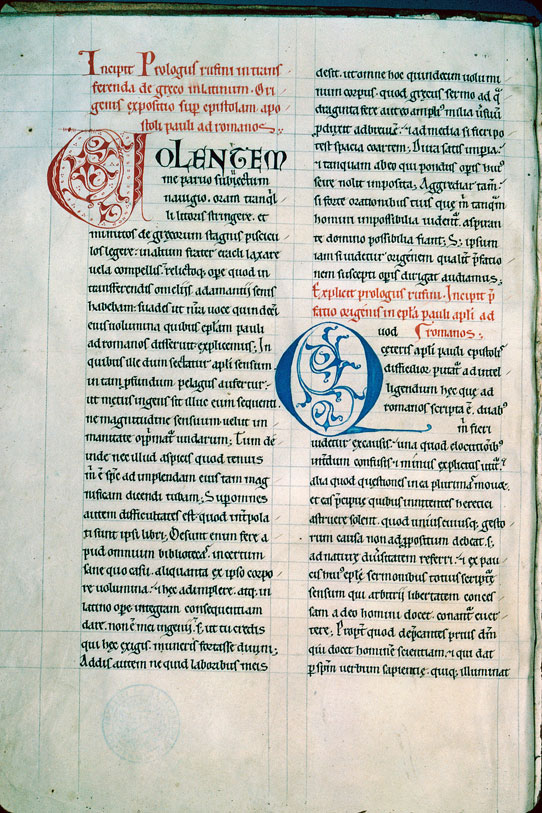 Incipit Prologus rufini in trans
ferenda de greco in latinum. Ori
genis expositio sup epistolam apo
stoli pauli ad romanos.
VOLENTEM
me paruo subuectum
nauigio. oram tranqͥl
li littoris stringere. et
minutos de grecorum stagnis piscicu
los legere. in altum frater eracli laxare
uela compellis. relictoq; ope quod in
transferendis omelijs adamantij senis
habebam. suades ut nr̄a uoce quindecī
eius uolumina quibus eplam pauli
ad romanos disseruit explicemus; In
quibus ille dum sectatur apli sensum
in tam pfundum pelagus aufertur.
ut metus ingens sit illuc eum sequenti
ne magnitudine sensuum uelut im
manitate opp̄matur undarum; Tum de
inde nec illud aspicis quod tenuis
m̄ ē sp̄c ad implendam eius tam mag
nificam dicendi tubam; Sup omnes
autem difficultates est. quod interpola
ti sunt ipsi libri; Desunt enim fere a
pud omnium bibliotecas. incertum
sane quo casu. aliquanta ex ipso corpo
re uolumina. et hec adimplere. atq; in
latino ope integram consequentiam
dare. non ē mei ingenij. s; ut tu credis
qui hec exigis. muneris fortasse diuini;
Addis autem ne quid laboribus meis
desit. ut omne hoc quindecim uolumi
num corpus. quod grecus sermo ad q̄
draginta fere aut eo amplius milia uersuum
pduxit adbreuiem. et ad media si fieri po
test spacia coartem; Dura satis imperia.
et tanquam ab eo qui pondus operis huiꝰ
scire nolit imposita; Aggrediar tam̄.
si forte orationibus tuis que m̄ tanqm̄
homini impossibilia uident᷑. aspiran
te domino possibilia fiant; S; ipsum
iam si uidetur origenem qualit̄ p̄fatio
nem suscepti opis dirigat audiamus;
Explicit prologus rufini. Incipit p̄
fatio origenis in epla pauli apli ad
romanos;
Quod
ceteris apli pauli epistolis
difficilior putat᷑ ad intel
ligendum hec que ad
romanos scripta ē. duabꝰ
m̄ fieri
uidetur ex causis. una quod elocutionibꝰ
int̄dum confusis et minus explicitis utit᷑.
alia quod questiones in ea plurimas mouet.
et eas p̄cipue quibus innitentes heretici
astruere solent. quod uniuscuiusq; gesto
rum causa non ad ppositum debeat. s;
ad nature diuersitatem referri. et ex pau
cis huiꝰ eple sermonibus totius scripture
sensum qui arbitrij libertatem conces
sam a deo homini docet. conant᷑ euer
tere; Propt̄ quod dep̄cantes prius dm̄
qui docet hominē scientiam. et qui dat
p sp̄m uerbum sapientie. quiq; illuminat